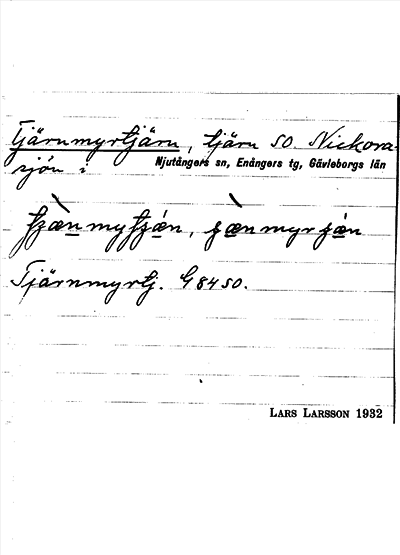 Tjärnmyrtjärn, tjärn SO. Nickora-
sjön i Njutångers sn, Enångers tg, Gävleborgs län
Tjärnmyrtj. G 84 SO.
LARS LARSSON 1932